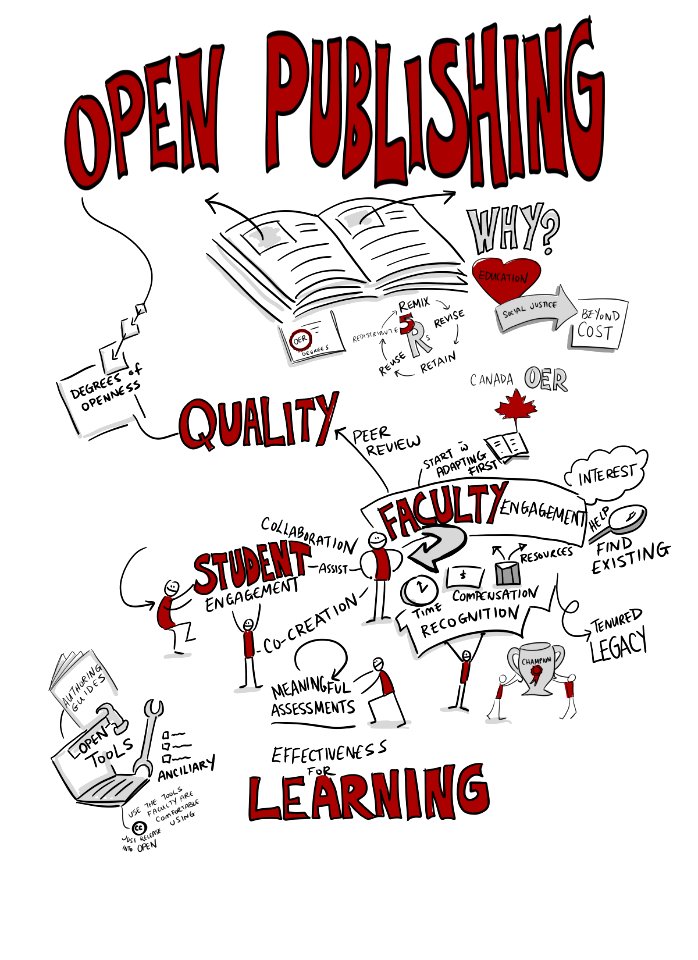 OPEN PUBLISHING
WHY?
EDUCATION
SOCIAL JUSTICE
BEYOND
COST
OER
DEGREES
5Rs
REMIX
REVISE
RETAIN
REUSE
REDISTRIBUTE
DEGREES of
OPENNESS
CANADA OER
QUALITY
PEER
REVIEW
START W
ADAPTING
FIRST
INTEREST
FACULTY
ENGAGEMENT
HELP
FIND
EXISTING
COLLABORATION
STUDENT
ENGAGEMENT
ASSIST
CO-CREATION
TIME
$
COMPENSATION
RESOURCES
RECOGNITION
TENURED
LEGACY
CHAMPION
MEANINGFUL
ASSESSMENTS
AUTHORING
GUIDES
OPEN
TOOLS
ANCILIARY
USE THE TOOLS
FACULTY ARE
COMFORTABLE
USING
CC
JUST RELEASE
INTO OPEN
EFFECTIVENESS
FOR
LEARNING